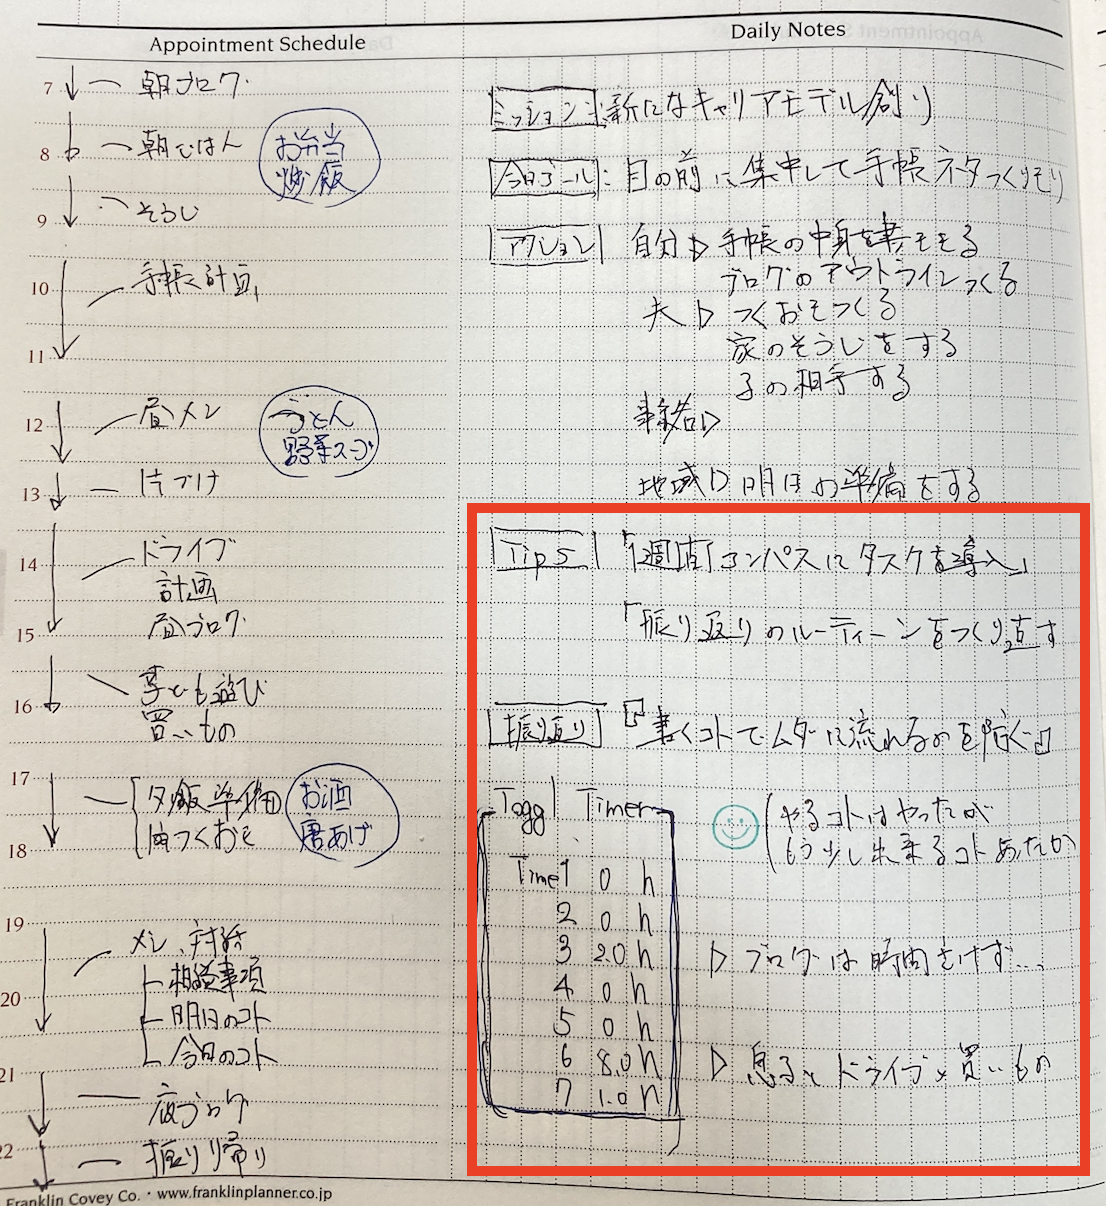 Appointment Schedule
7 朝ブログ
8 朝ごはん
お弁当
炒飯
9 そうじ
10 手帳計画
11
12 昼メシ
うどん
野菜スープ
13 片づけ
14 ドライブ
計画
15 昼ブログ
16 子ども遊び
買いもの
17 夕飯準備
18 つくおき
お酒
唐あげ
19 メシ、対話
相談事項
20 明日のコト
今日のコト
21 夜ブログ
22 振り帰り
Franklin Covey Co. · www.franklinplanner.co.jp
Daily Notes
ミッション:新たなキャリアモデル創り
今日ゴール:目の前に集中して手帳ネタつくりきり
アクション 自分▷手帳の中身を書ききる
ブログのアウトラインつくる
夫▷つくおきつくる
家のそうじをする
子の相手する
▷
地域▷明日の準備をする
Tips 「1週間コンパスにタスクを導入」
「振り返りのルーティーンをつくり直す
振り返り 『書くコトでムダに流れるのを防ぐ』
Toggl Timer
Time1 0 h
2 0 h
3 2.0 h
4 0 h
5 0 h
6 8.0 h
7 1.0 h
やるコトはやったが
もう少し出来るコトあったか
▷ ブログは時間さけず…
▷ 息子とドライブ、買いもの